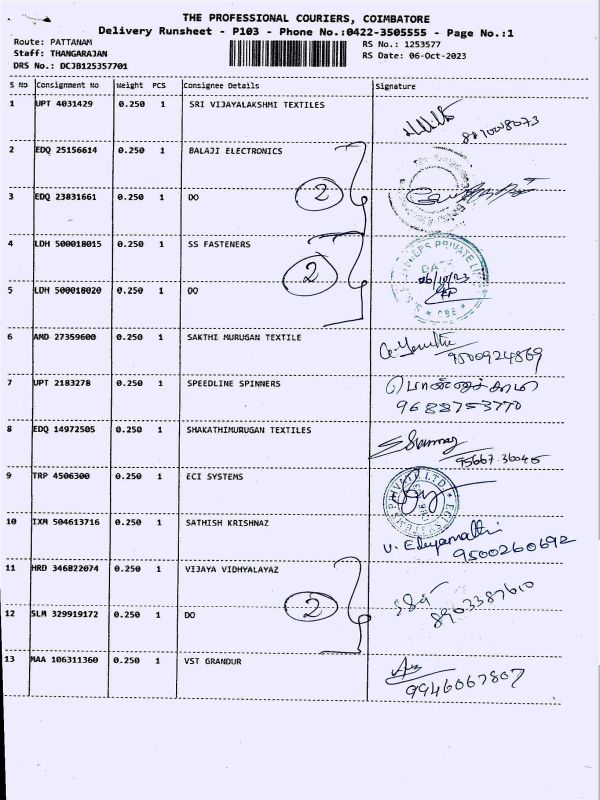 THE PROFESSIONAL COURIERS, COIMBATORE
Delivery Runsheet - P103 - Phone No.:0422-3505555 - Page No.:1
Route: PATTANAM RS No.: 1253577
Staff: THANGARAJAN RS Date: 06-Oct-2023
DRS No.: DCJB125357701
S No Consignment No Weight PCS Consignee Details Signature
1 UPT 4031429 0.250 1 SRI VIJAYALAKSHMI TEXTILES
2 EDQ 25156614 0.250 1 BALAJI ELECTRONICS
2
3 EDQ 23831661 0.250 1 DO
4 LDH 500018015 0.250 1 SS FASTENERS
2
DATE
06/10/23
CBE
5 LDH 500018020 0.250 1 DO
6 AMD 27359600 0.250 1 SAKTHI MURUGAN TEXTILE
9500924869
7 UPT 2183278 0.250 1 SPEEDLINE SPINNERS
9688753770
8 EDQ 14972505 0.250 1 SHAKATHIMURUGAN TEXTILES
95667 36045
9 TRP 4506300 0.250 1 ECI SYSTEMS
ECI SYSTEMS PRIVATE LTD
10 IXM 504613716 0.250 1 SATHISH KRISHNAZ
9500260692
11 HRD 346822074 0.250 1 VIJAYA VIDHYALAYAZ
2
8903387610
12 SLM 329919172 0.250 1 DO
13 MAA 106311360 0.250 1 VST GRANDUR
9946067807